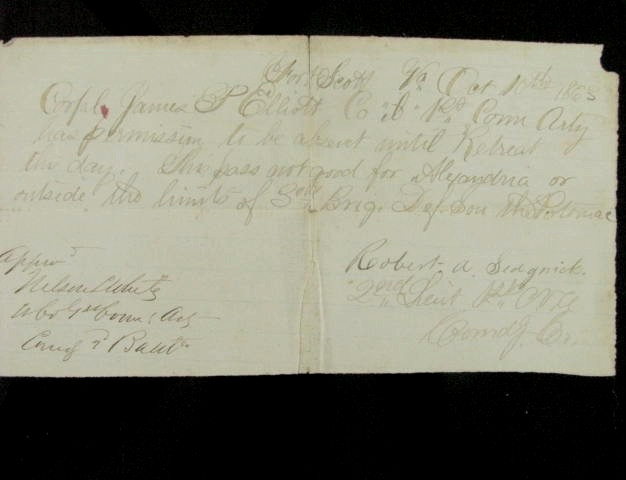 Fort Scott Va Oct 10th 1863
Corpl. James P Elliott Co "C" Conn Arty
has permission to be absent until Retreat
this day. This pass not good for Alexandria or
outside the limits of 3rd Brig. Def. Sou. the Potomac
Robert A. Sedgwick.
2nd Lieut
Comdg. Co.
Appvd
Nelson L White
Conn: Arty
Comdg